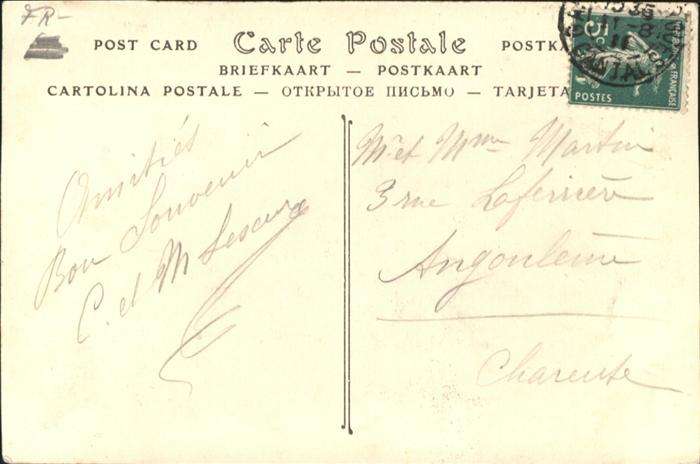 FR-
POST CARD Carte Postale POSTK
BRIEFKAART — POSTKAART
CARTOLINA POSTALE — ОТКРЫТОЕ ПИСЬМО — TARJETA
5c
POSTES
FRANÇAISE
CANTAL
Amitiés
Bon Souvenir
C. et M Lescure
M. et Mme Martin
3 rue Laferrière
Angoulême
Charente